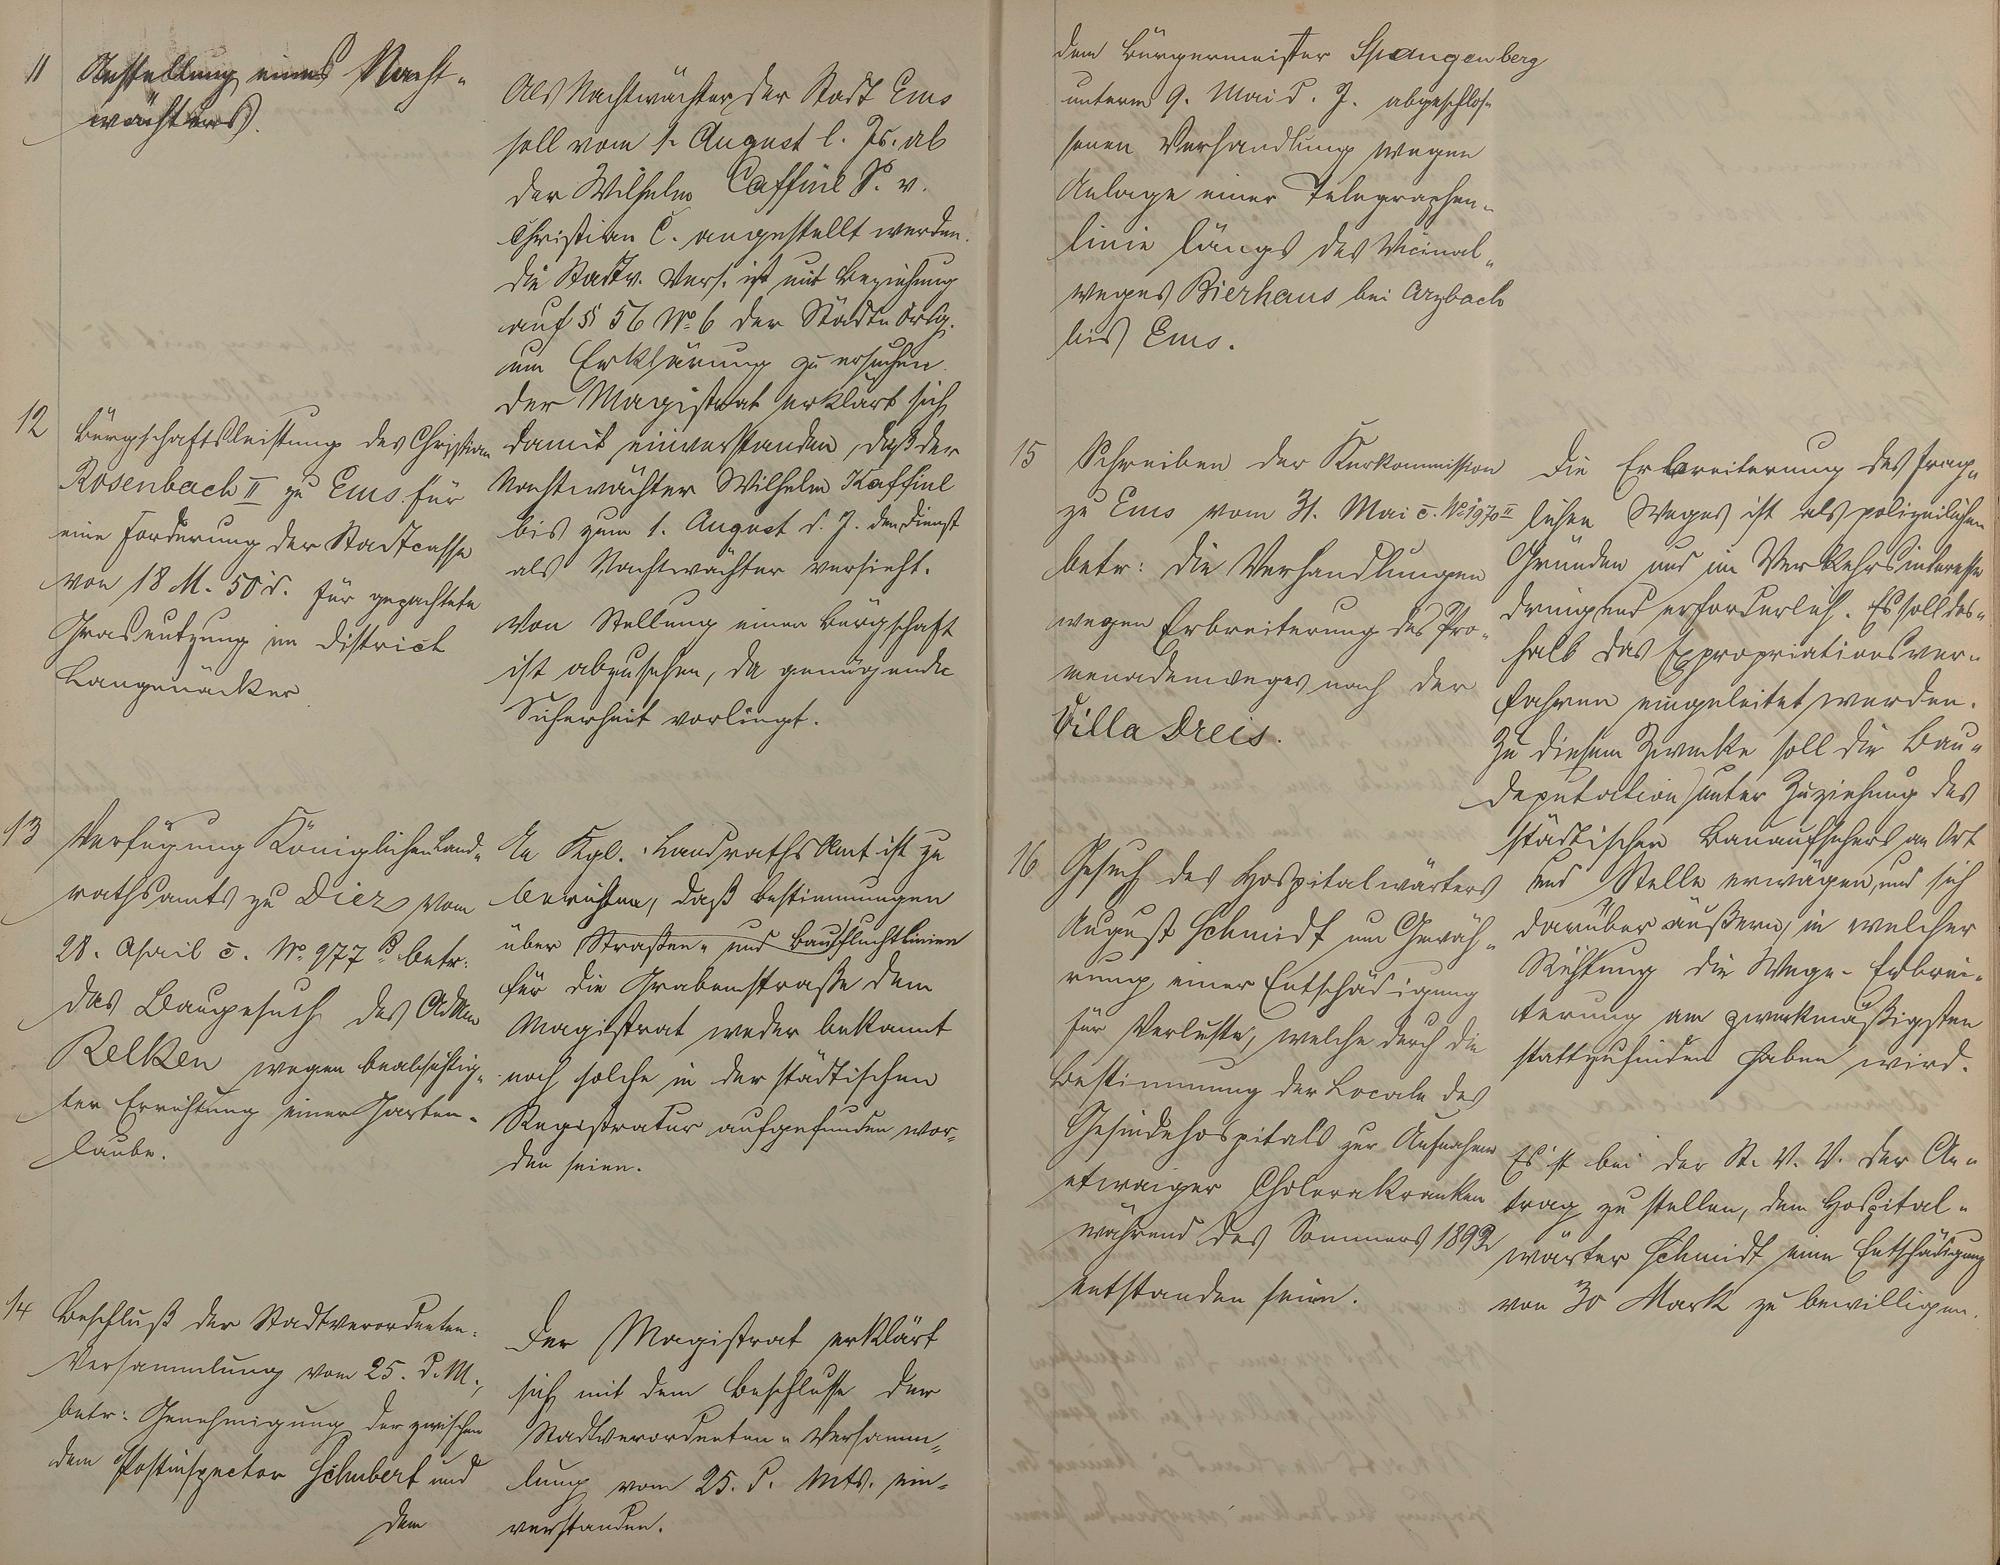 11 Anstellung eines Nacht-
wächters.
Als Nachtwächter der Stadt Ems
soll vom 1. August l. Js. ab
der Wilhelm Caffine S. v.
Christian C. angestellt werden.
Die Stadtv. Vers. ist mit Beziehung
auf § 56 No 6 der Städteordg.
um Erklärung zu ersuchen.
Der Magistrat erklärt sich
damit einverstanden, daß der
Nachtwächter Wilhelm Kaffine
bis zum 1. August d. J. den Dienst
als Nachtwächter versieht.
12 Bürgschaftsleistung des Christian
Rosenbach II zu Ems für
eine Forderung der Stadtcasse
von 18 M. 50 d. für gepachtete
Grasnutzung im District
Langenäcker
Von Stellung einer Bürgschaft
ist abzusehen, da genügende
Sicherheit vorliegt.
13 Verfügung Königlichen Land-
rathsamts zu Diez vom
28. April c. No. 977 B betr:
das Baugesuch des Adam
Relken wegen beabsichtig-
ter Errichtung einer Garten-
laube.
An Kgl. Landraths Amt ist zu
berichten, daß Bestimmungen
über Straßen- und Baufluchtlinien
für die Grabenstraße dem
Magistrat weder bekannt
noch solche in der städtischen
Registratur aufgefunden wor-
den seien.
14 Beschluß der Stadtverordneten-
Versammlung vom 25. d. M.,
betr: Genehmigung der zwischen
dem Postinspector Schubert und
dem
Der Magistrat erklärt
sich mit dem Beschlusse der
Stadtverordneten-Versamm-
lung vom 25. d. Mts. ein-
verstanden.
dem Bürgermeister Spangenberg
unterm 9. Mai d. J. abgeschlos-
senen Verhandlung wegen
Anlage einer Telegraphen-
linie längs des Vicinal-
weges Bierhaus bei Arzbach
bis Ems.
15 Schreiben der Kurkommission
zu Ems vom 31. Mai c. No 1970 II
betr: die Verhandlungen
wegen Erbreiterung des Pro-
menadenweges nach der
Villa Dreis.
Die Erbreiterung des frag-
lichen Weges ist als polizeilichen
Gründen und im Verkehrsinteresse
dringend erforderlich. Es soll des-
halb das Expropriationsver-
fahren eingeleitet werden.
Zu diesem Zwecke soll die Bau-
deputation unter Zuziehung des
städtischen Bauaufsehers an Ort
und Stelle erwägen, und sich
darüber äußern, in welcher
Richtung die Wege-Erbrei-
terung am zweckmäßigsten
stattzufinden haben wird.
16 Gesuch des Hospitalwärters
August Schmidt um Gewäh-
rung einer Entschädigung
für Verluste, welche durch die
Bestimmung der Locale des
Gesindehospitals zur Aufnahme
etwaiger Cholerakranken
während des Sommers 1892
entstanden seien.
Es ist bei der St. V. V. der An-
trag zu stellen, dem Hospital-
wärter Schmidt eine Entschädigung
von 30 Mark zu bewilligen.